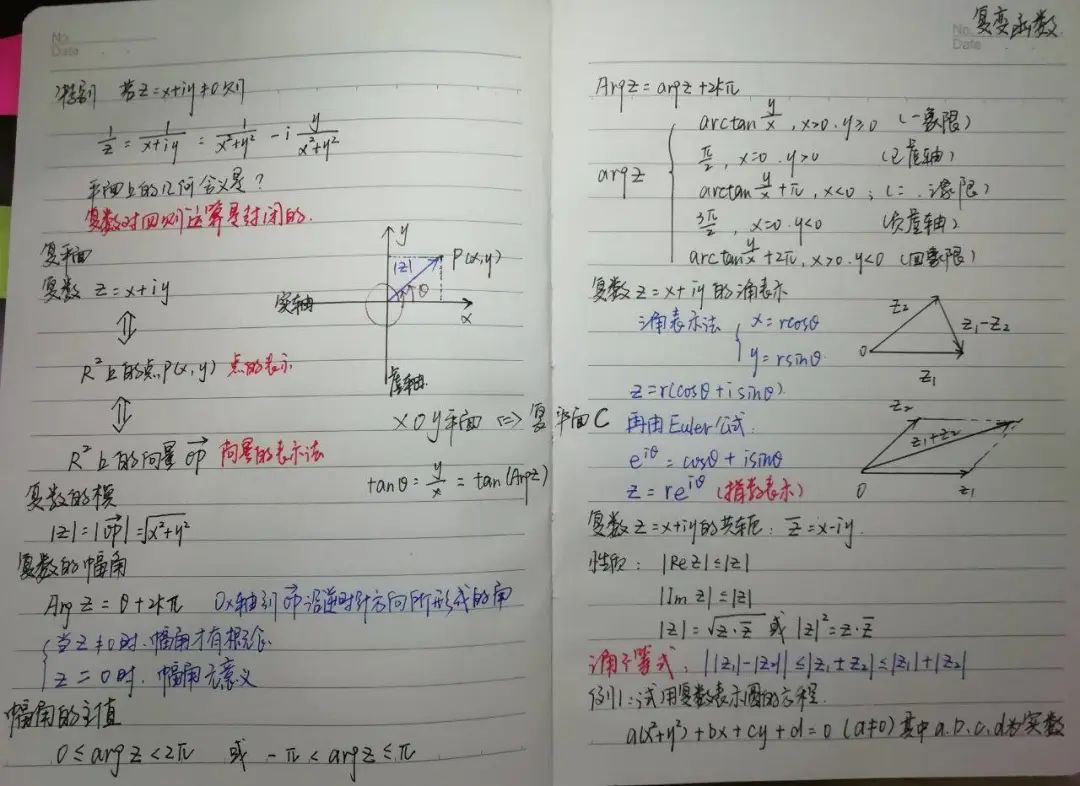 No.
Date
特别 若z=x+iy≠0则
1/z = 1/(x+iy) = x/(x²+y²) - i y/(x²+y²)
平面上的几何含义是?
复数对四则运算是封闭的.
复平面
复数 z=x+iy
⇕
R²上的点P(x,y) 点的表示
⇕
R²上的向量OP→ 向量的表示法
y
|z|
P(x,y)
θ
实轴
x
虚轴
xOy平面 => 复平面C
tanθ = y/x = tan(Argz)
复数的模
|z|=|OP→|=√(x²+y²)
复数的幅角
Arg z = θ+2kπ Ox轴到OP→沿逆时针方向所形成的角
当z≠0时.幅角才有概念
z=0时.幅角无意义
幅角的主值
0≤argz<2π 或 -π<argz≤π
复变函数
No.
Date
Argz=argz+2kπ
argz
arctan y/x, x>0.y≥0 (一象限)
π/2, x=0.y>0 (正虚轴)
arctan y/x +π, x<0; (二.三象限)
3π/2, x=0.y<0 (负虚轴)
arctan y/x +2π, x>0.y<0 (四象限)
复数z=x+iy的三角表示
三角表示法 { x=rcosθ
y=rsinθ
z=r(cosθ+isinθ)
再由Euler公式:
e^{iθ}=cosθ+isinθ
z=re^{iθ} (指数表示)
z₂
z₁-z₂
0
z₁
z₂
z₁+z₂
0
z₁
复数z=x+iy的共轭: z̅=x-iy.
性质: |Rez|≤|z|
|Im z|≤|z|
|z|=√(z·z̅) 或 |z|²=z·z̅
三角不等式: ||z₁|-|z₂||≤|z₁+z₂|≤|z₁|+|z₂|
例1:试用复数表示圆的方程.
a(x²+y²)+bx+cy+d=0 (a≠0) 其中a.b.c.d为实数